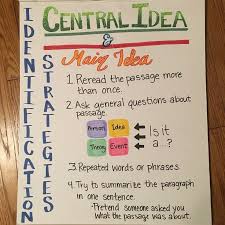 IDENTIFICATION
STRATEGIES
CENTRAL IDEA
&
Main Idea
1. Reread the passage
more than once.
2. Ask general questions about
passage.
Person Idea
Theory Event
Is it
a...?
3. Repeated words or phrases.
4. Try to summarize the paragraph
in one sentence.
-Pretend someone asked you
what the passage was about.